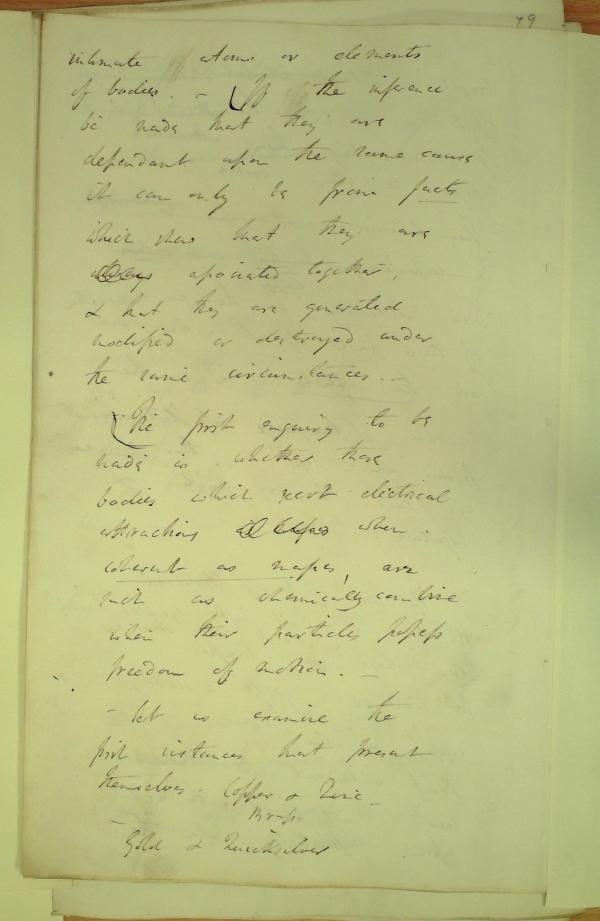 79
intimate atoms or elements
of bodies. - If the inference
be made that they are
dependant upon the same cause
it can only be from facts
which shew that they are
always associated together,
& that they are generated
modified or destroyed under
the same circumstances. -
The first enquiry to be
made is whether those
bodies which exert electrical
attractions when
coherent as masses, are
such as chemically combine
when their particles possess
freedom of motion. -
- let us examine the
first instances that present
themselves. Copper & Zinc -
Brass
- Gold & Quicksilver